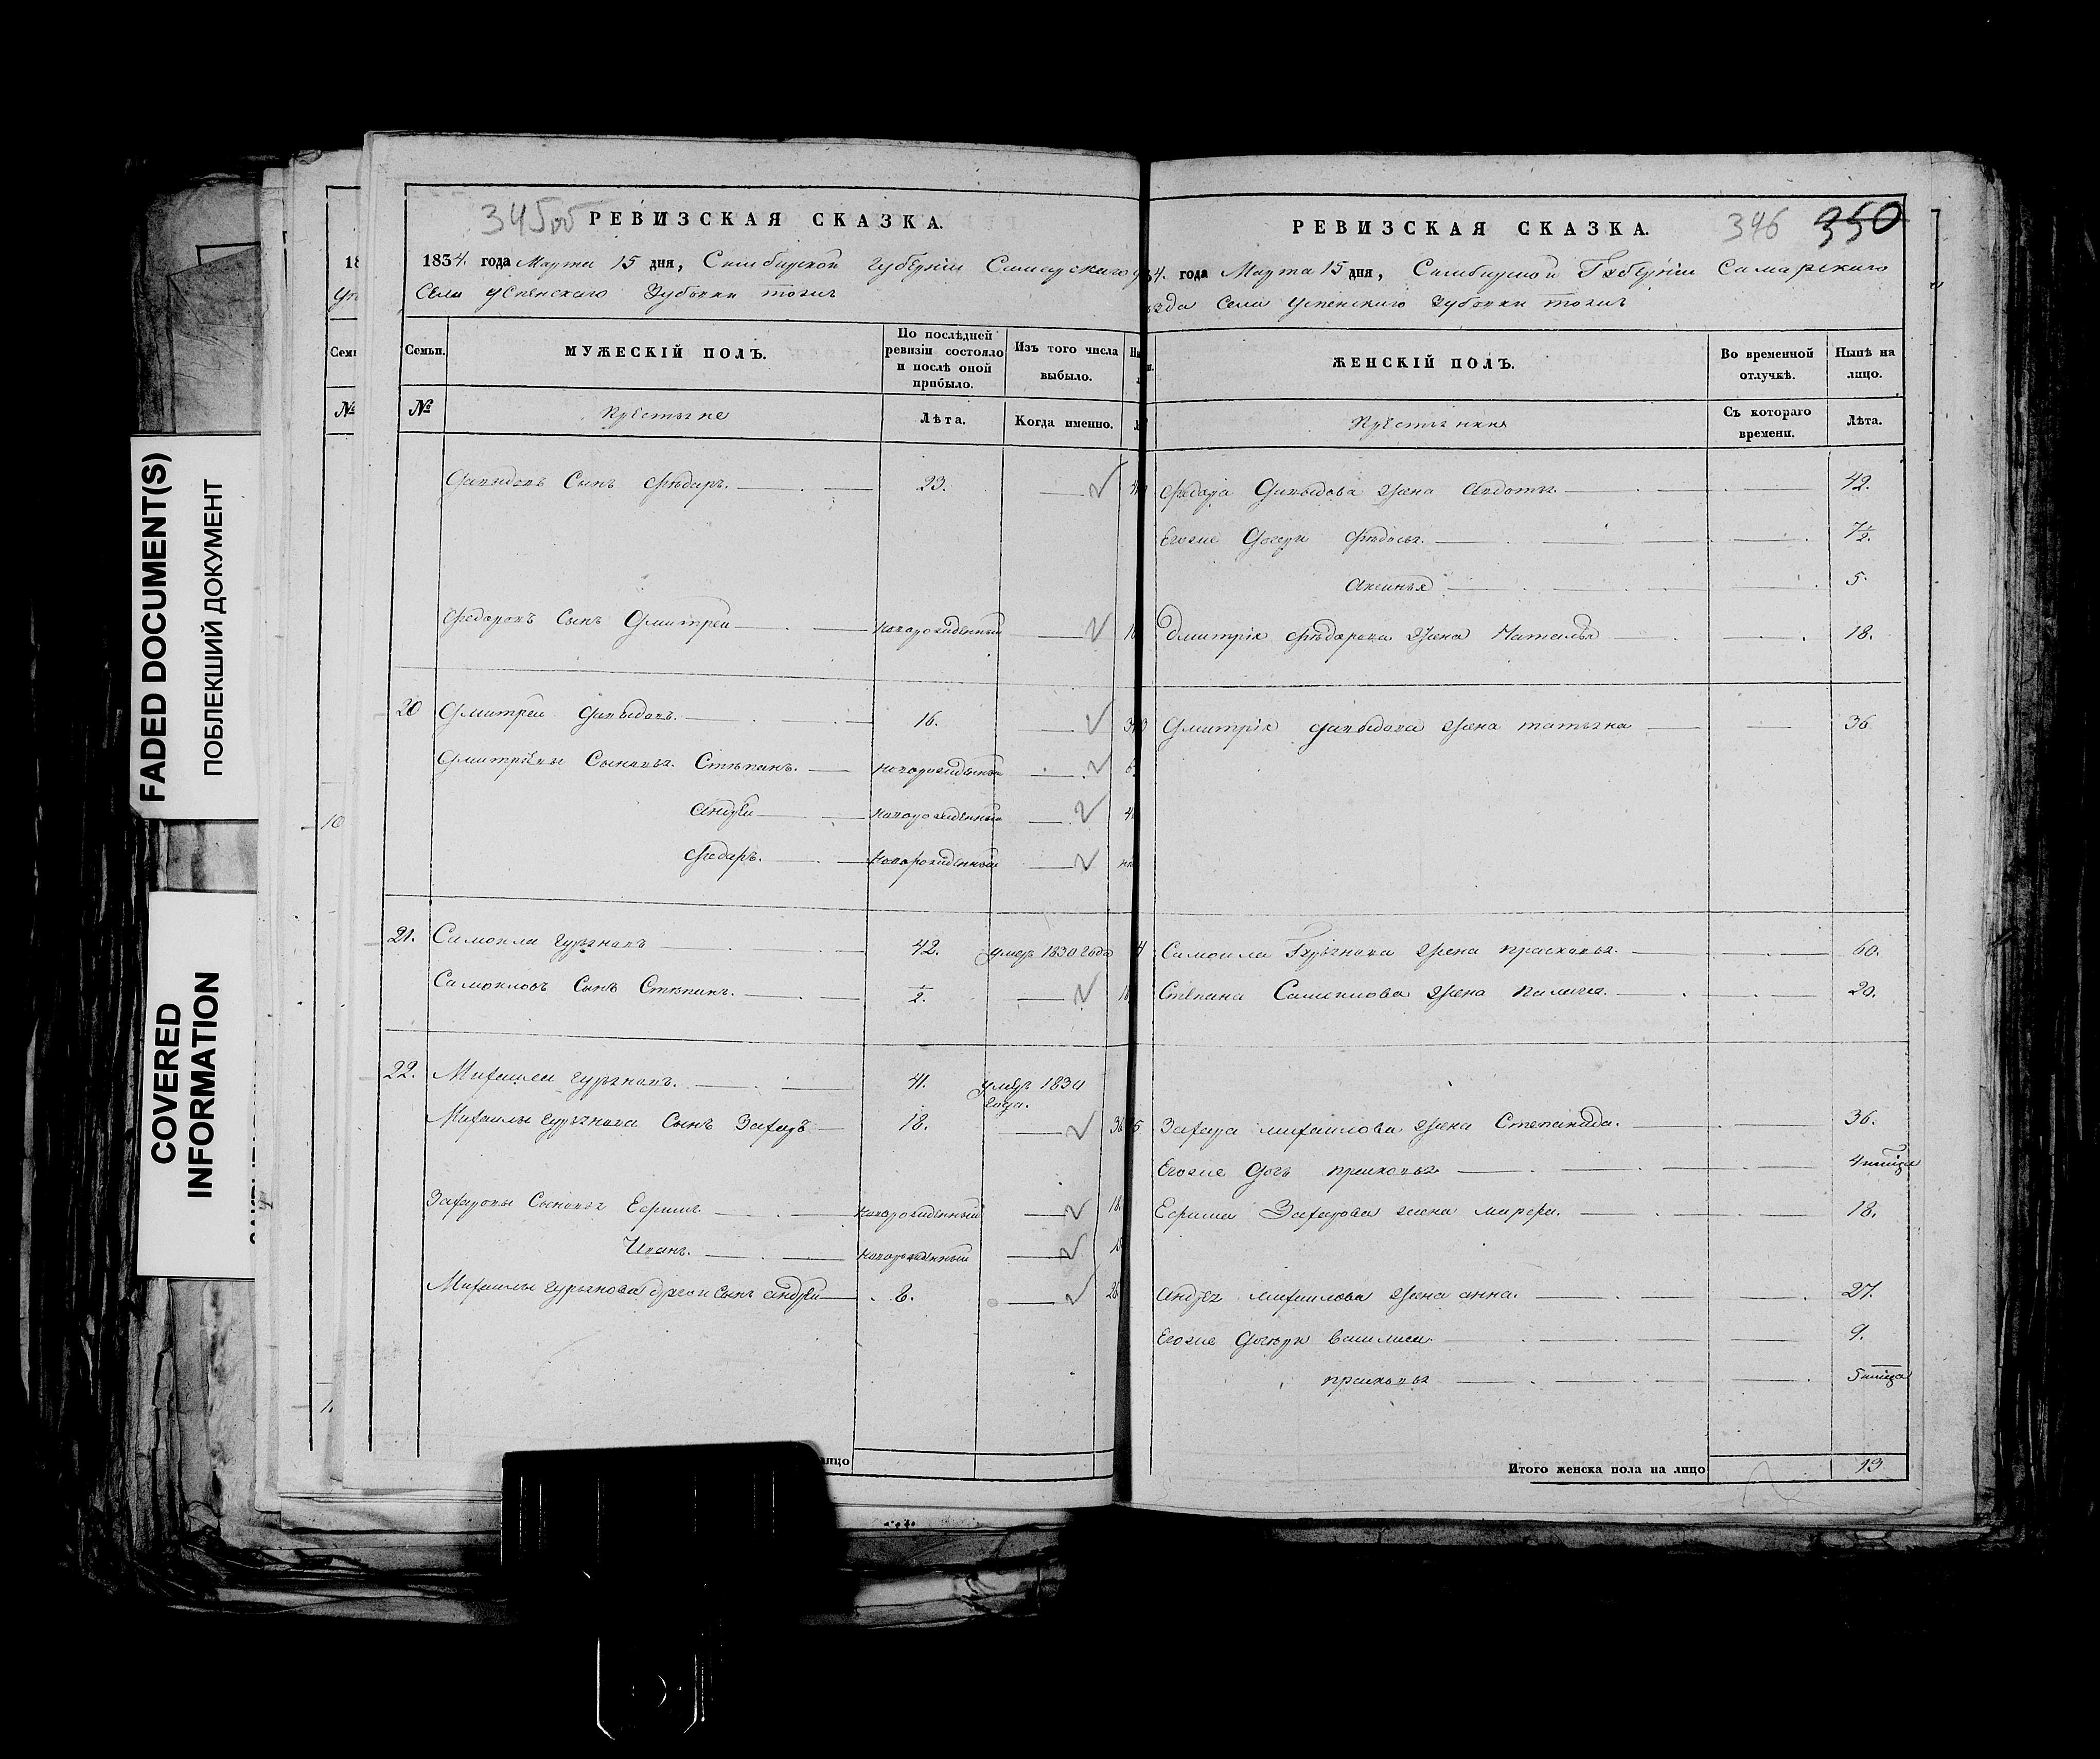 FADED DOCUMENT(S)
ПОБЛЕКШИЙ ДОКУМЕНТ
COVERED INFORMATION
345об
РЕВИЗСКАЯ СКАЗКА.
1834. года Марта 15 дня, Симбирской губерніи Самарскаго
Села Успенскаго Зубовки тожъ
Семьи.
МУЖЕСКІЙ ПОЛЪ.
По послѣдней ревизіи состояло и послѣ оной прибыло.
Изъ того числа выбыло.
№
Крестьяне
Лѣта.
Когда именно.
Давыдовъ Сынъ Федаръ. 23.
Федаровъ Сынъ Дмитреи новорожденный
20 Дмитреи Давыдовъ. 16.
Дмитріевы Сыновья. Степанъ. новорожденный
андреи новорожденный 4
Федаръ. новорожденный
21. Самоила гурьяновъ 42. умеръ 1830 года
Самоиловъ Сынъ Степанъ. 1/2.
22. Михаила гурьяновъ. 41. умеръ 1830 года.
Михаилы гурьянова Сынъ Захаръ 18. 36
Захаровы Сыновья Ефимъ. новорожденный 18.
Иванъ. новорожденный
Михаилы гурьянова другои Сынъ андреи 8. 26
РЕВИЗСКАЯ СКАЗКА.
346 350
4. года Марта 15 дня, Симбирской Губерніи Самарскаго
ѣзда Села Успенскаго Зубовки тожъ
ЖЕНСКІЙ ПОЛЪ.
Во временной отлучкѣ.
Нынѣ на лицо.
Крестьянки
Съ котораго времени.
Лѣта.
Федара Давыдова жена авдотья. 42.
Егоже Дочери Федосья. 7 1/2.
Аксинья 5.
Дмитрія Федарова жена Наталья 18.
Дмитрія давыдова жена татьяна 36
Самоила Гурьянова жена прасковья. 60.
Степана Самоилова жена Палагея. 20.
Захара михаилова жена Степанида. 36.
Егоже Дочь прасковья 4 месеца
Ефима Захарова жена марфа. 18.
Андрея михаилова жена анна. 27.
Егоже Дочери Василиса. 9.
прасковья 5 месеца
Итого женска пола на лицо 13